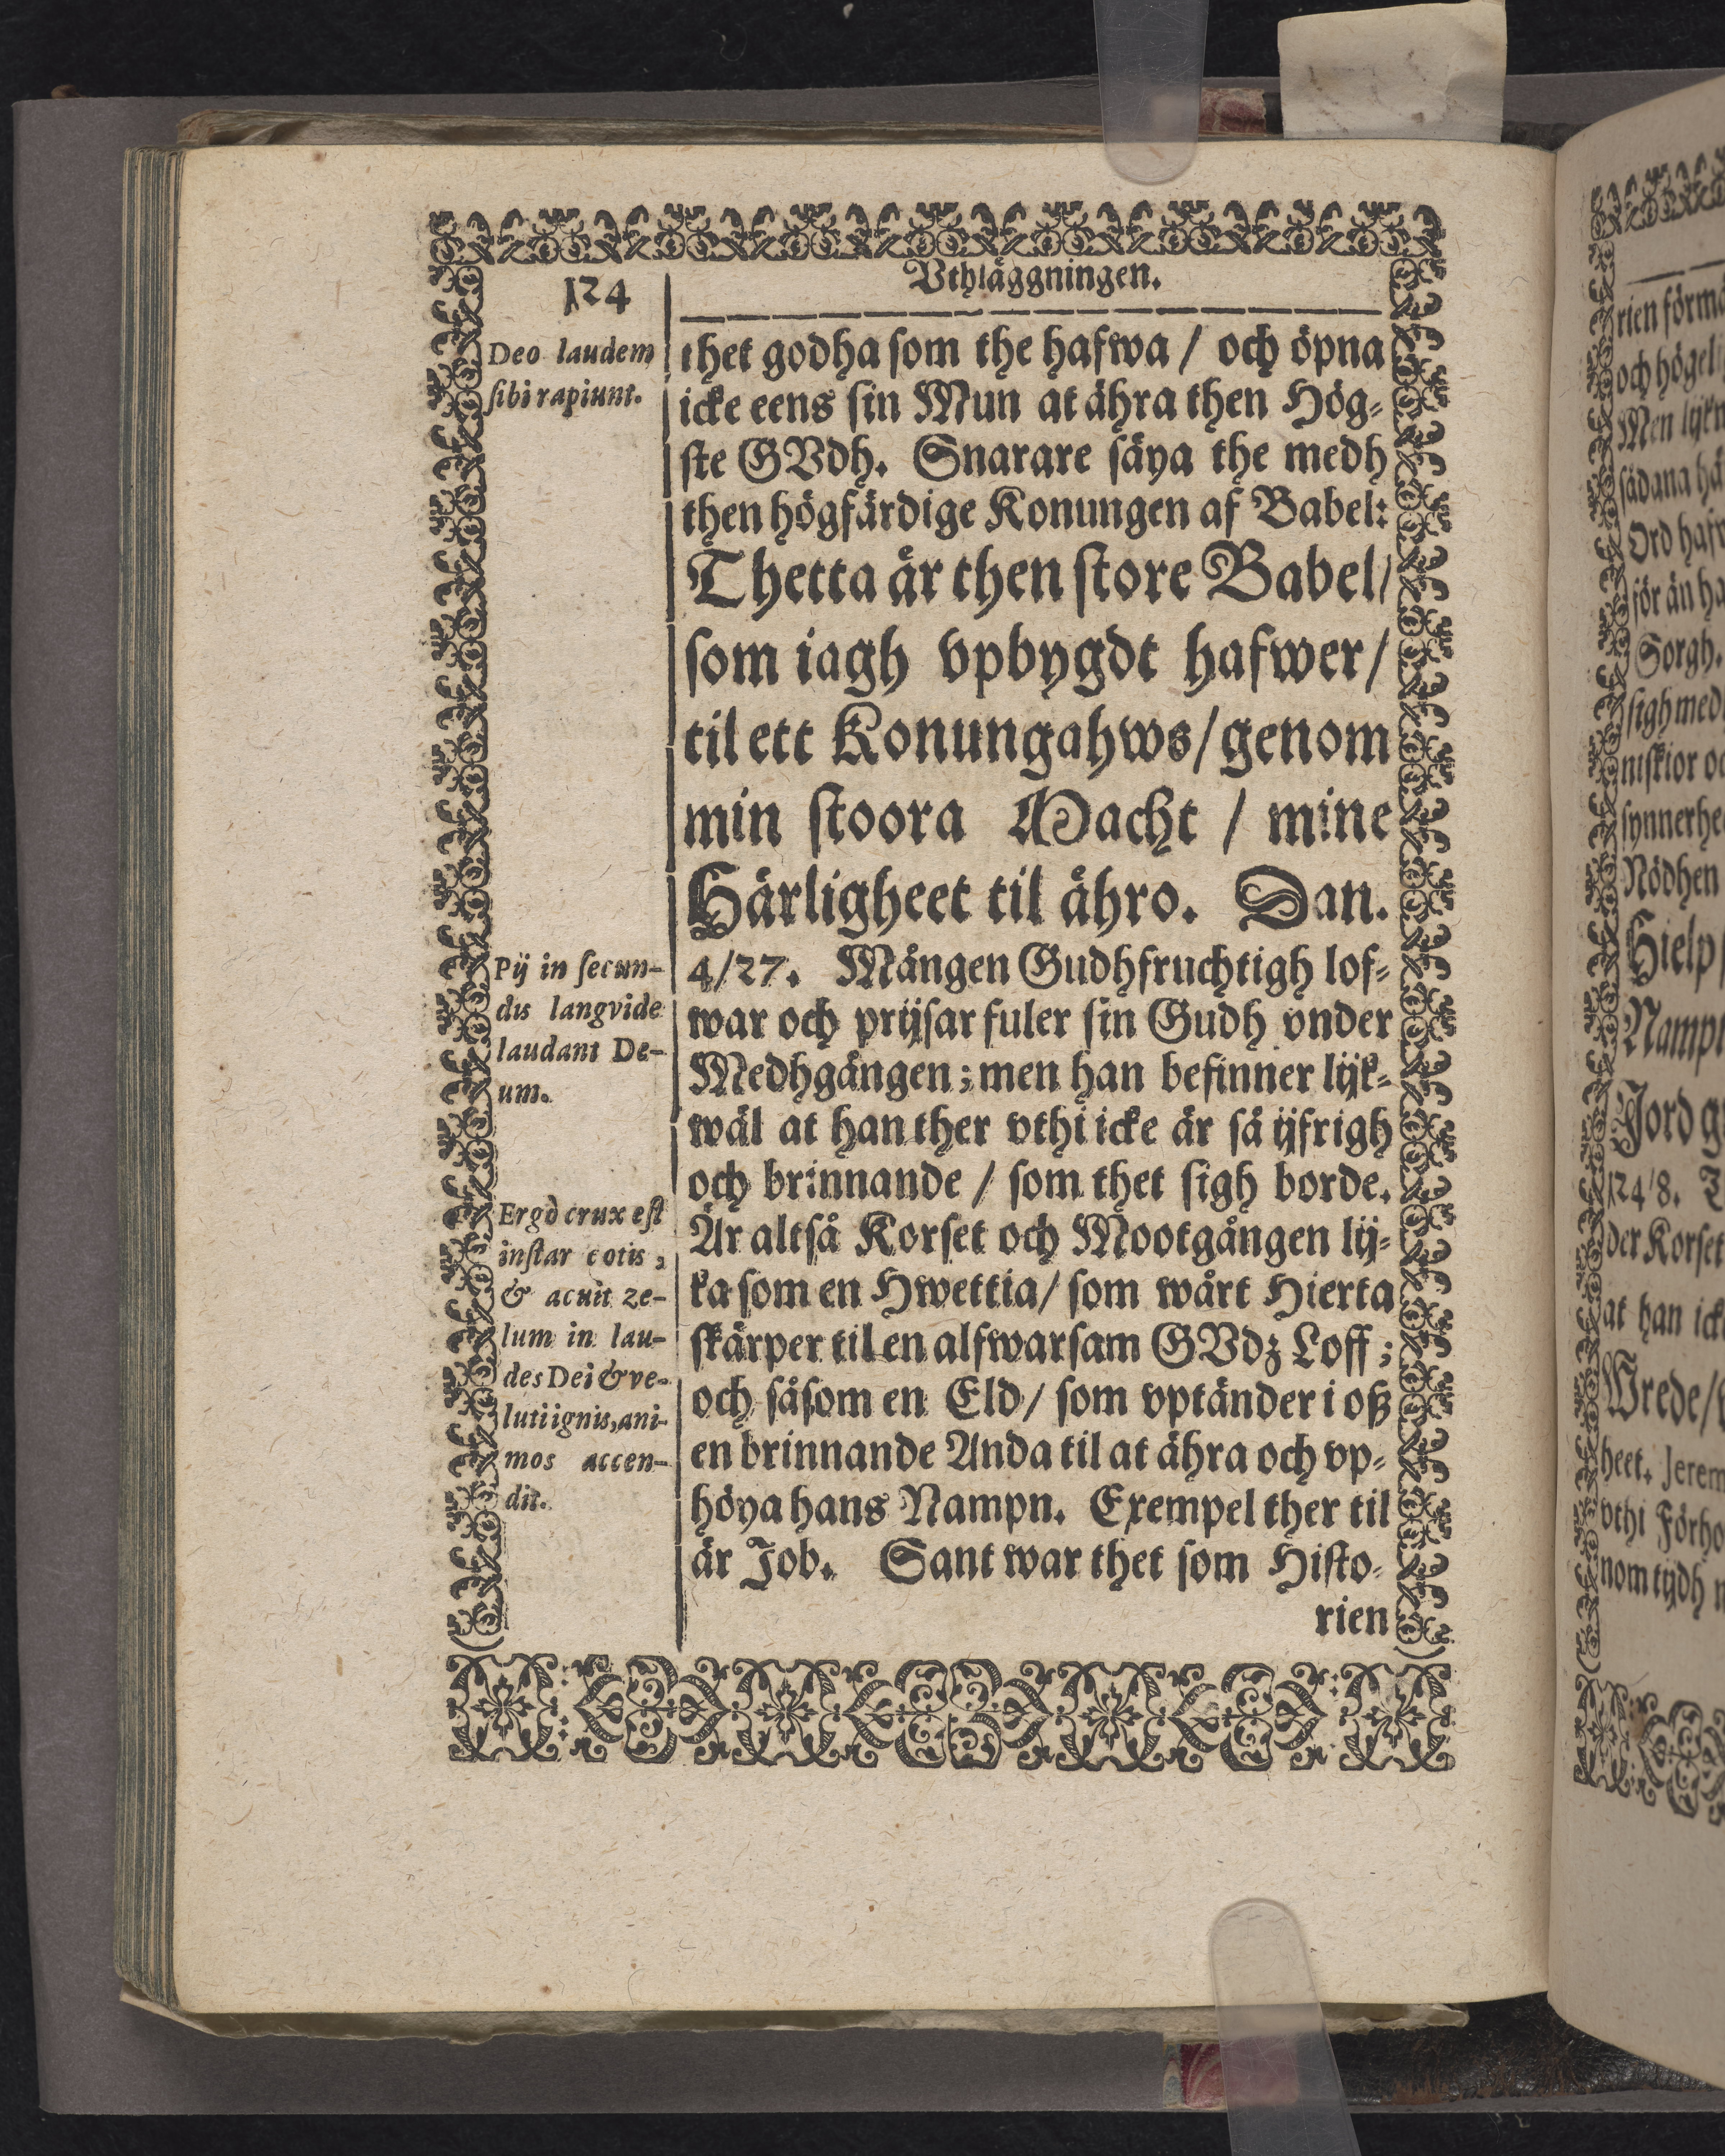 124
Vthläggningen.
Deo laudem
sibi rapiunt.
thet godha som the hafwa / och öpna
icke eens sin Mun at ähra then Hög-
ste GVdh. Snarare säya the medh
then högfärdige Konungen af Babel:
Thetta är then store Babel/
som iagh vpbygdt hafwer/
til ett Konungahws/genom
min stoora Macht / mine
Härligheet til ähro. Dan.
4/27. Mången Gudhfruchtigh lof-
war och prijsar fuler sin Gudh vnder
Medhgången; men han befinner lijk-
wäl at han ther vthi icke är så ijfrigh
och brinnande / som thet sigh borde.
Är altså Korset och Mootgången lij-
ka som en Hwettia/ som wårt Hierta
skärper til en alfwarsam GVdz Loff;
och såsom en Eld/ som vptänder i oß
en brinnande Anda til at ähra och vp-
höya hans Nampn. Exempel ther til
är Job. Sant war thet som Histo-
rien
Pij in secun-
dis langvide
laudant De-
um.
Ergò crux est
instar cotis,
& acuit ze-
lum in lau-
des Dei & ve-
luti ignis, ani-
mos accen-
dit.
rien förmä
och högeli
Men lijkn
sådana hä
Ord hafw
för än ha
Sorgh.
sigh med
niskior oc
synnerhe
Nödhen
Hielp/
Nampn
Jord g
124/8.
der Korset
at han icke
Wrede/
heet. Jerem
vthi Förho
nom tijdh